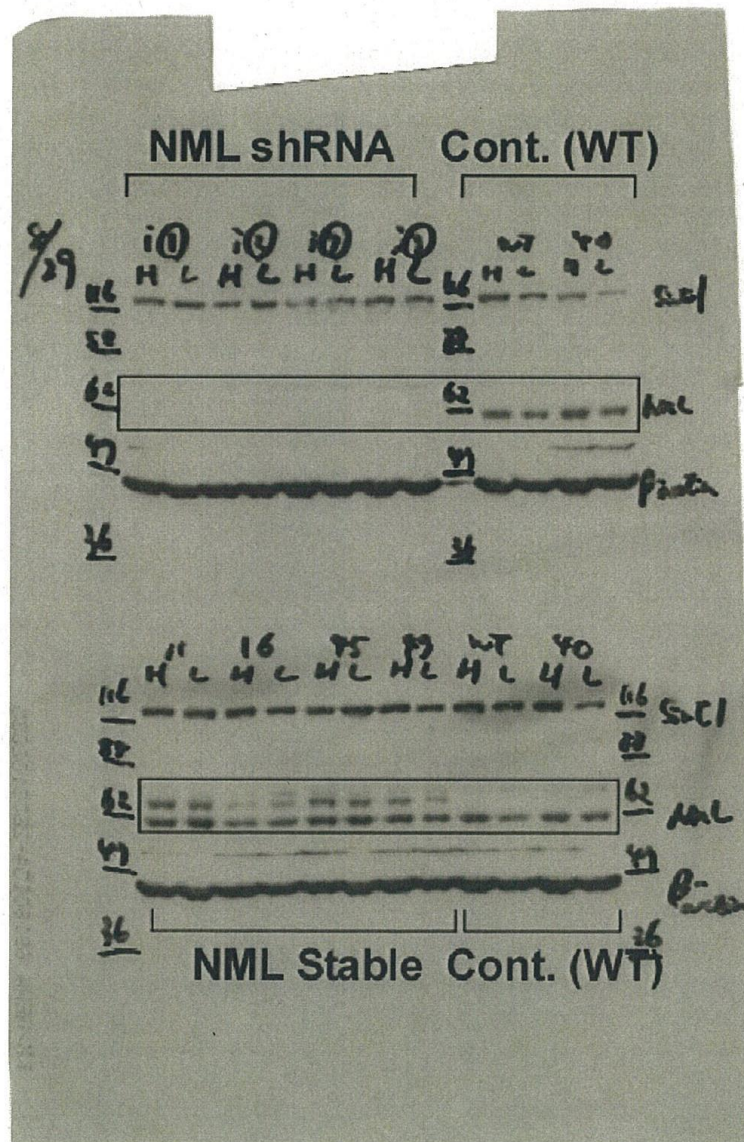 NML shRNA Cont. (WT)
8/29
i① WT 40
H L H L H L H L H L H L
116 116
62 62 NmL
47 47
β actin
36 36
11 16 45 WT 40
H L H L H L H L H L H L
116 116 SirT1
62 62 NmL
47 47
β-actin
36 36
NML Stable Cont. (WT)